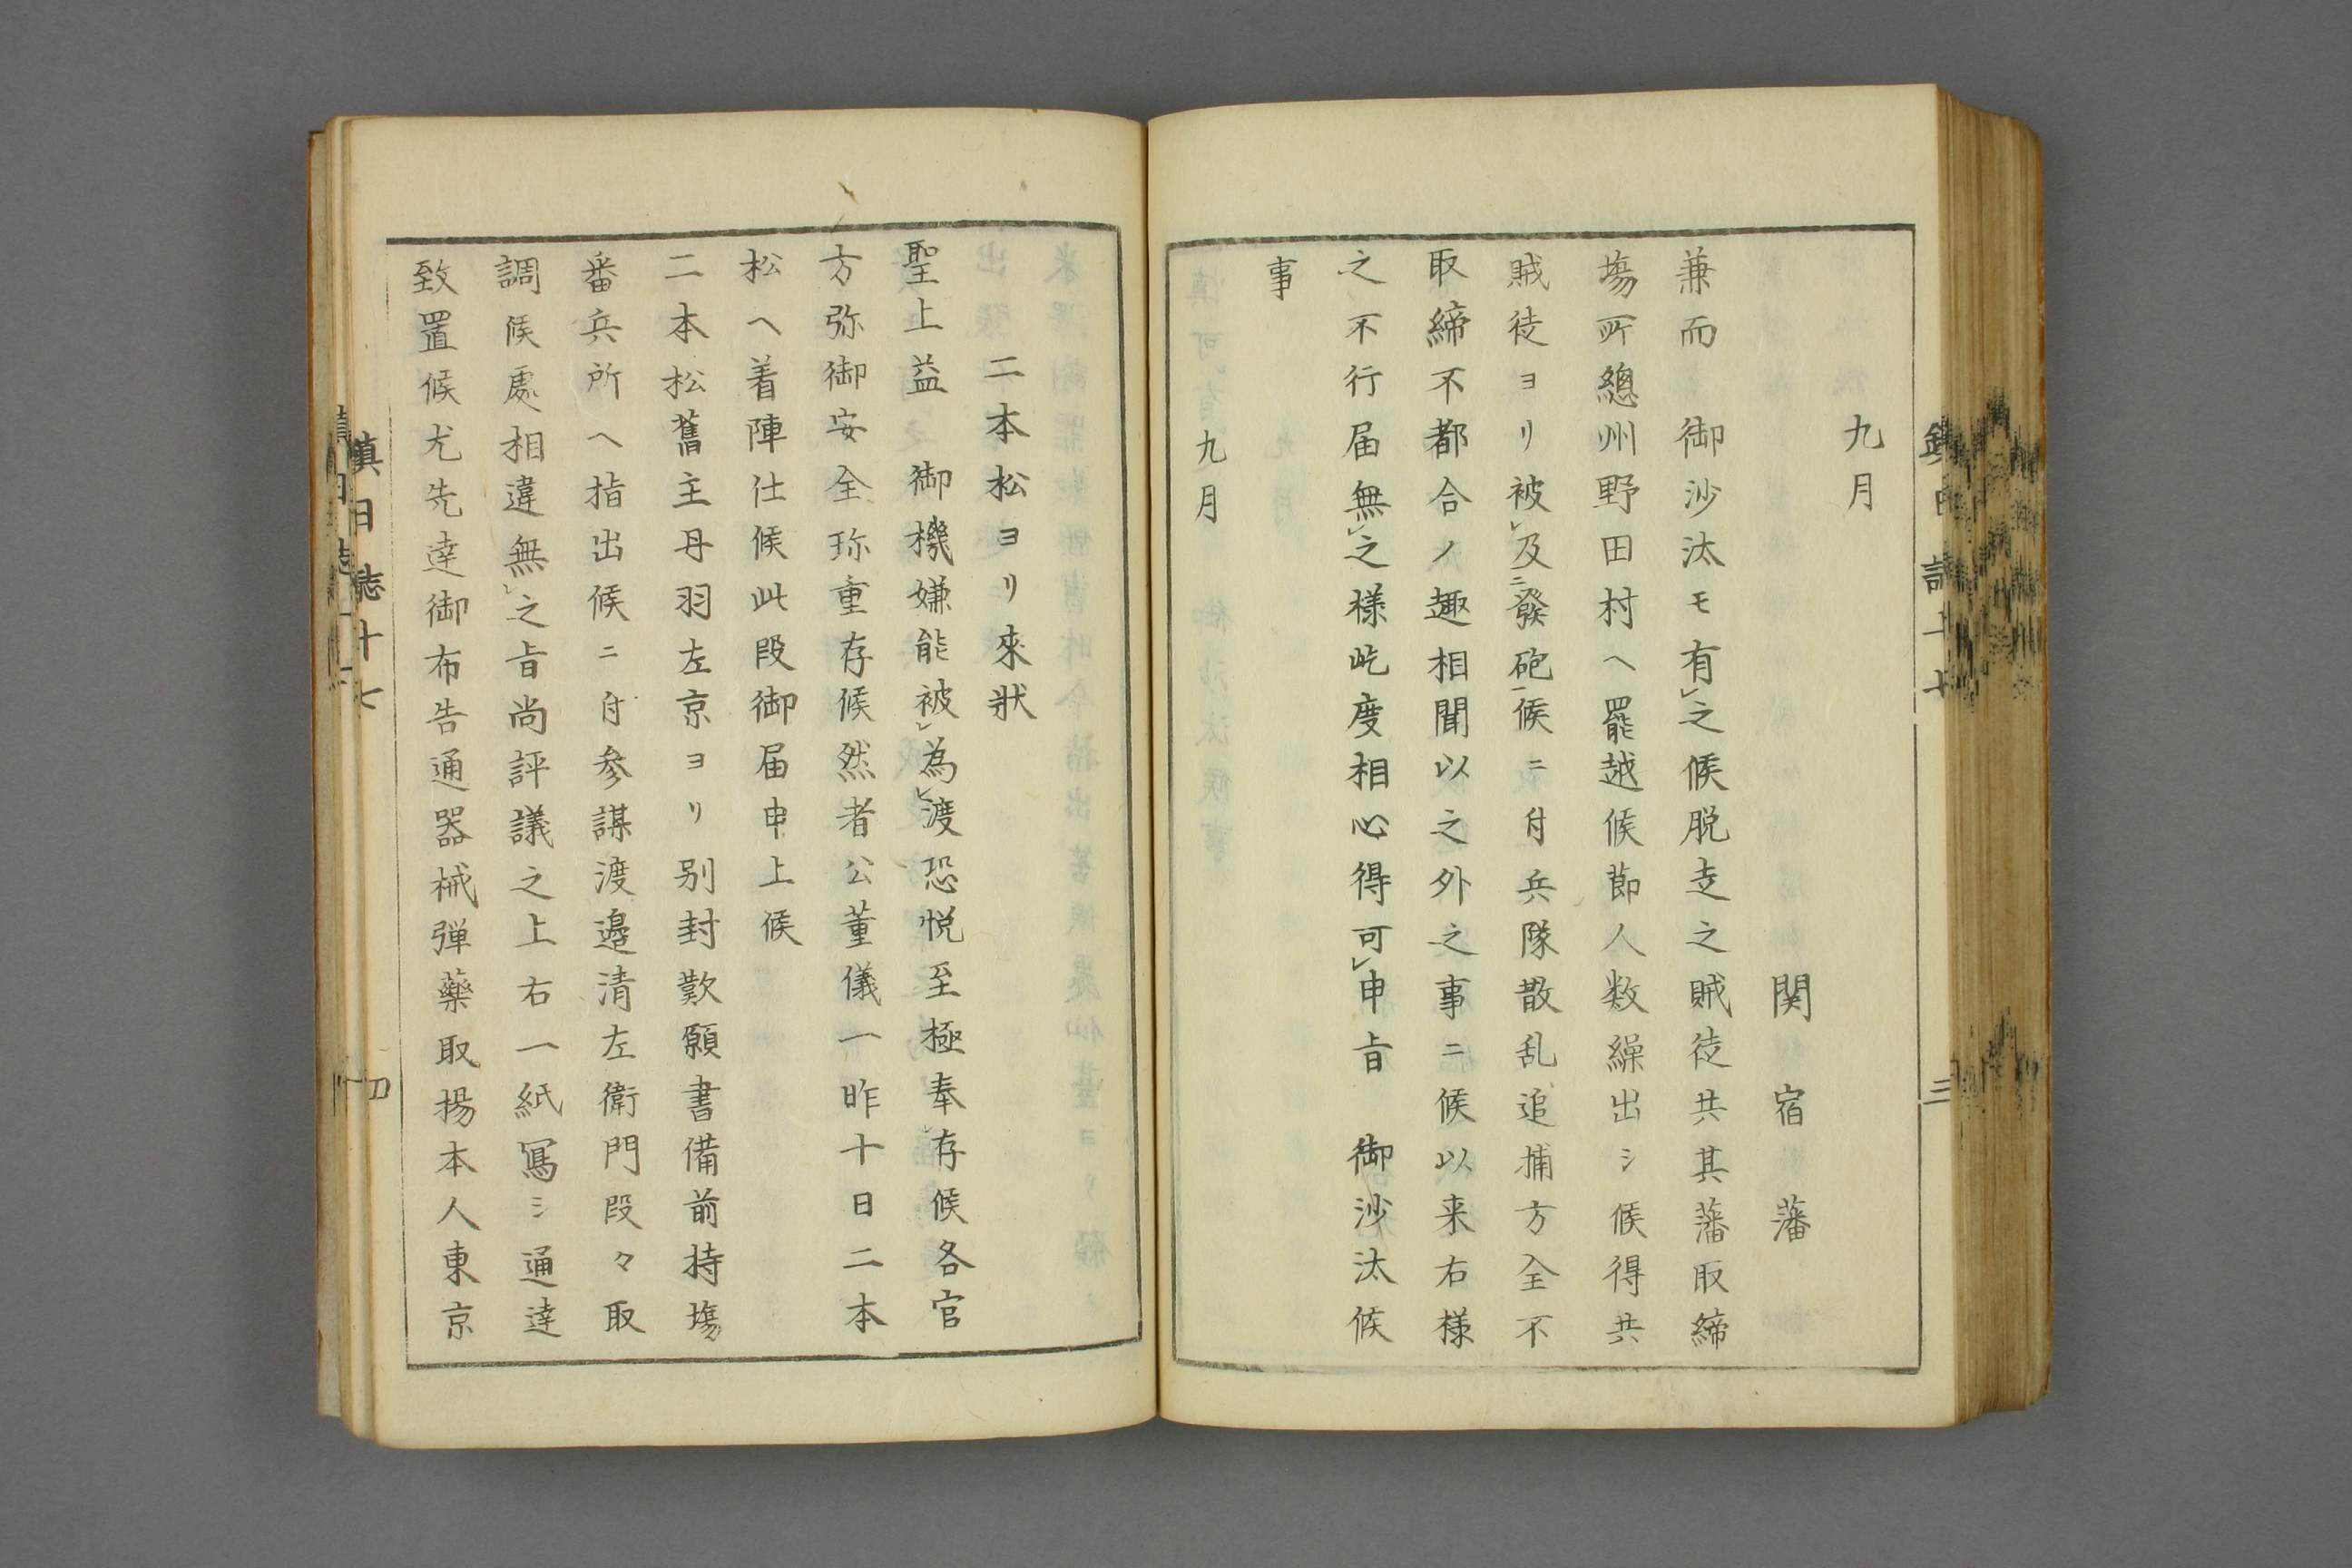 九月
関宿藩
兼而　御沙汰モ有㆑之候脱走之賊徒共其藩取締
塲所總州野田村ヘ罷越候節人数繰出シ候得共
賊徒ヨリ被㆑及㆓發砲㆒候ニ付兵隊散乱追捕方全不
取締不都合ノ趣相聞以之外之事ニ候以来右様
之不行届無㆑之様屹度相心得可㆑申旨　御沙汰候
事
九月
二本松ヨリ來狀
聖上益　御機嫌能被㆑為㆑渡恐悦至極奉㆑存候各官
方弥御安全珎重存候然者公董儀一昨十日二本
松ヘ着陣仕候此段御届申上候
二本松舊主丹羽左京ヨリ别封歎願書備前持塲
番兵所ヘ指出候ニ付参謀渡邉清左衛門段々取
調候處相違無㆑之旨尚評議之上右一紙寫シ通達
致置候尤先達御布告通器械弾藥取揚本人東京
鎮日誌十七
三
鎮日誌十七
四